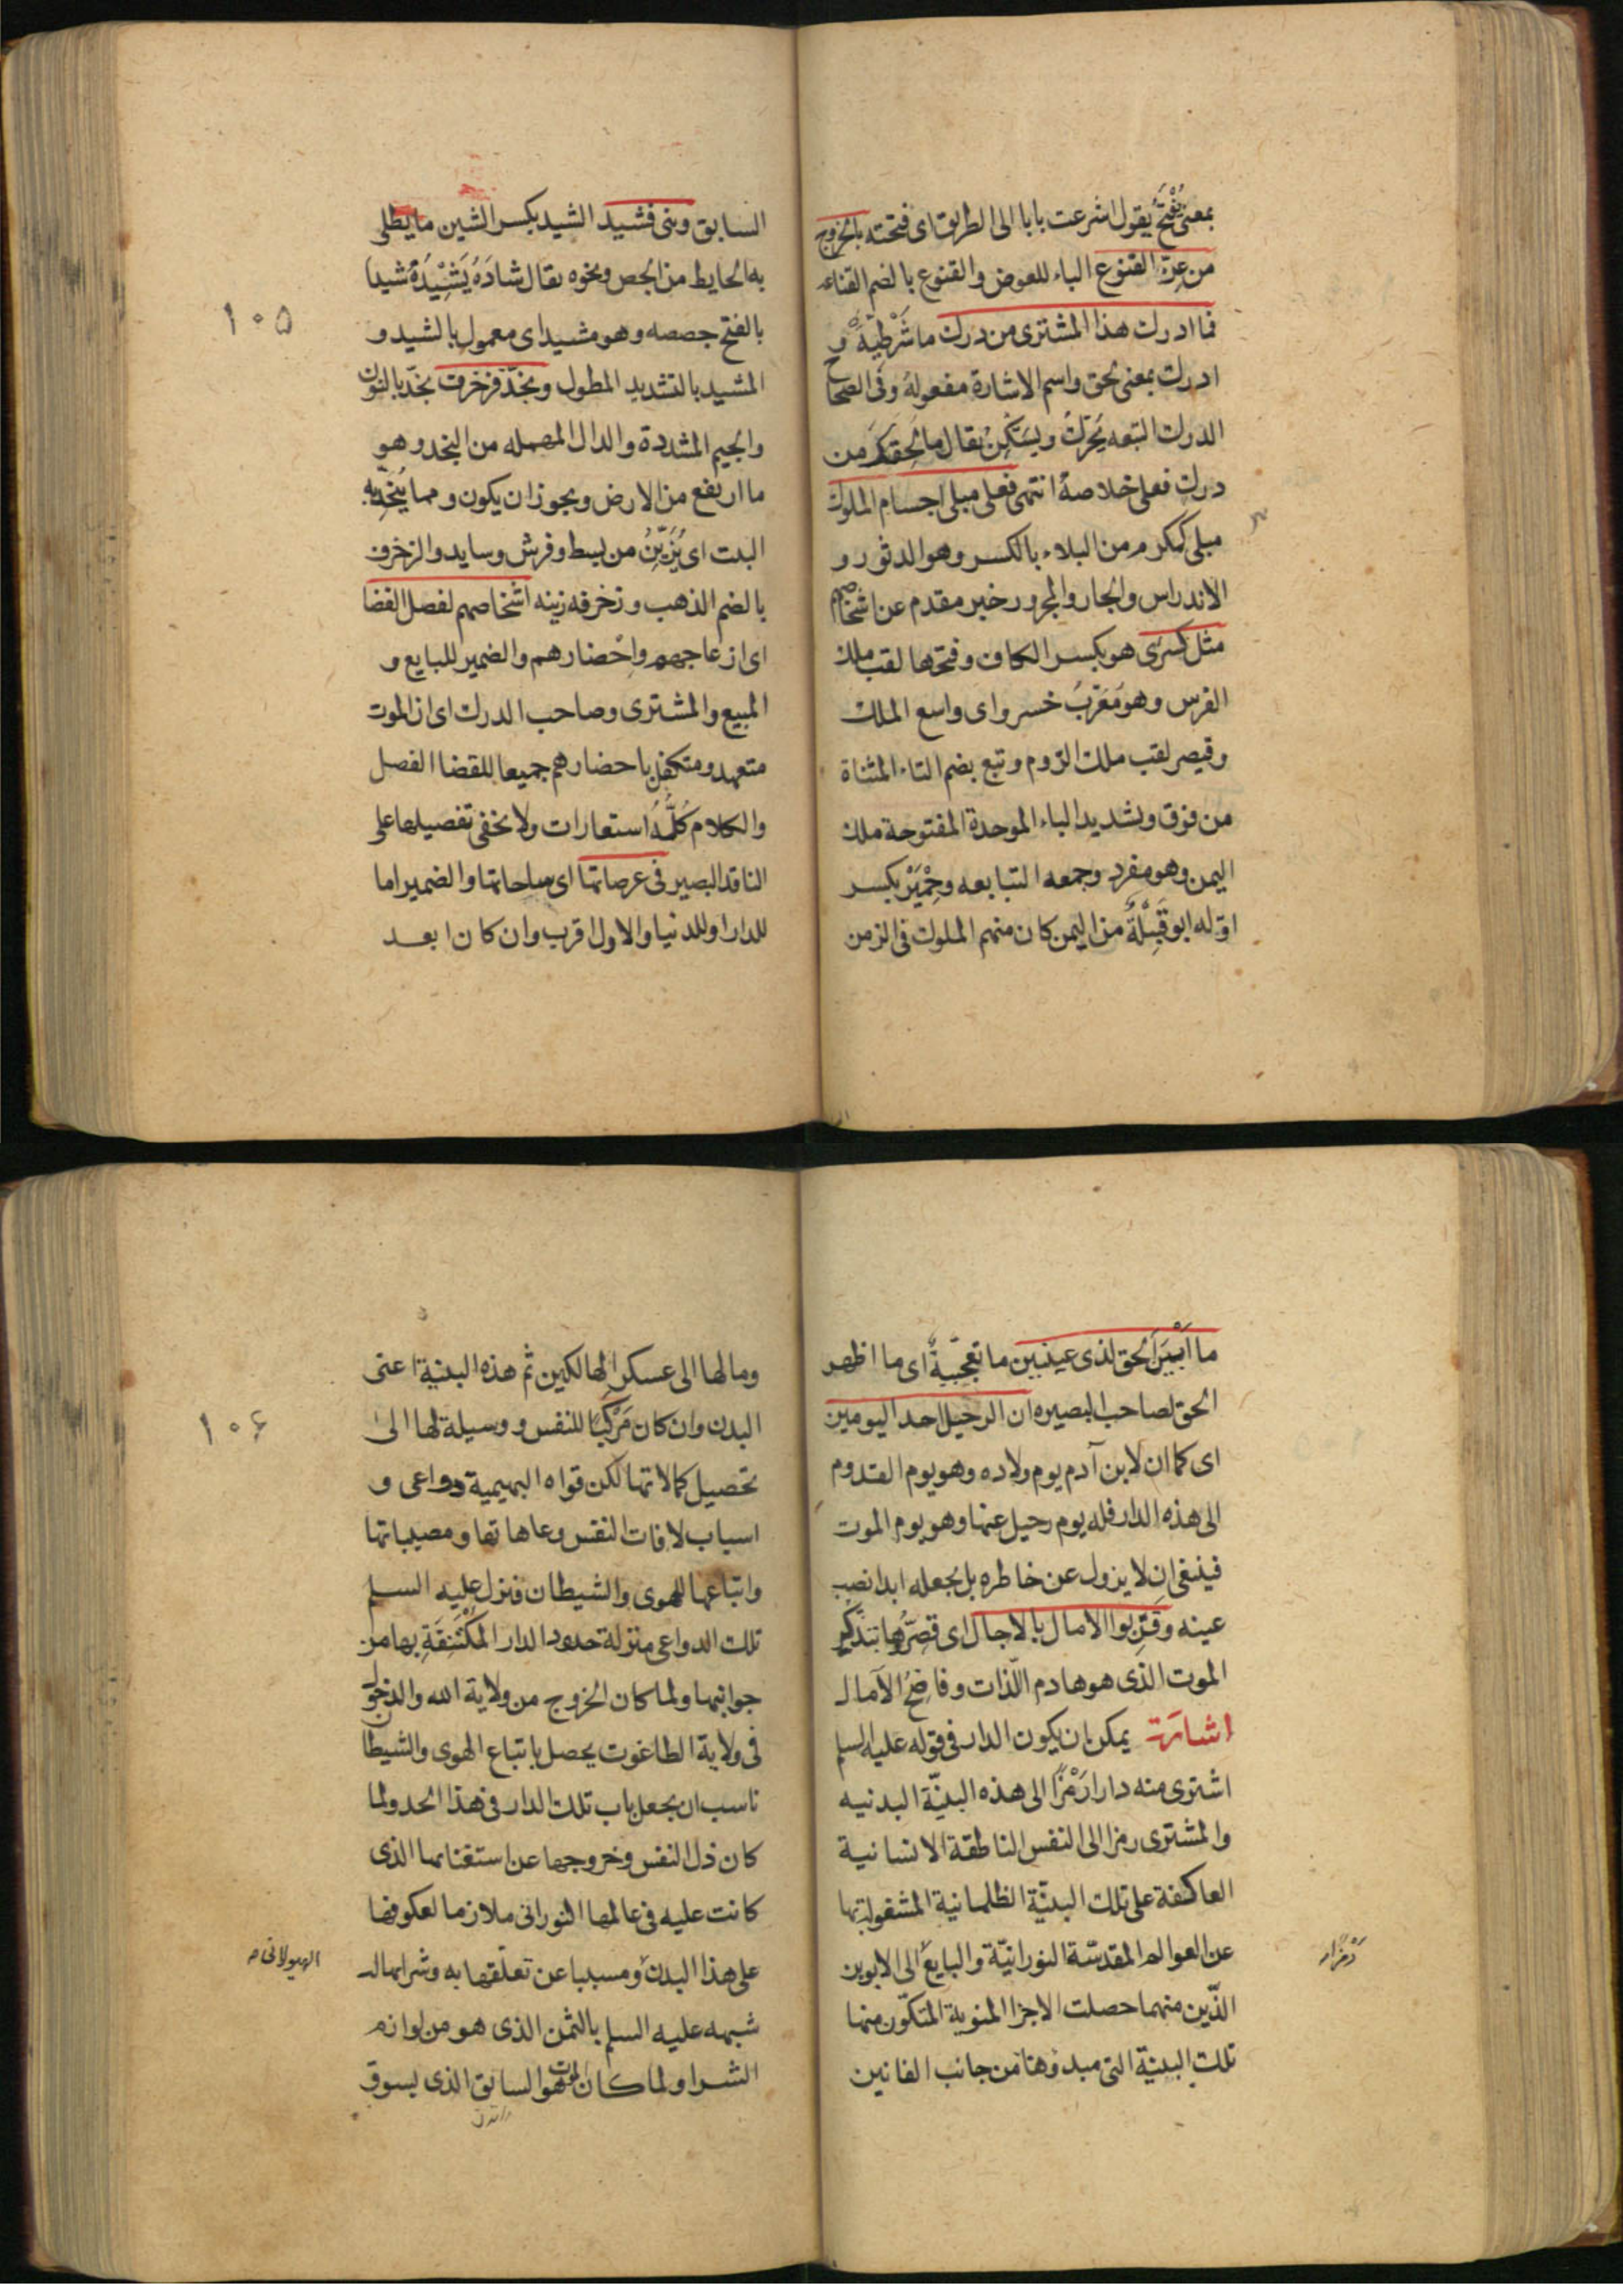 بمعنی یُفْتَحُ یقول اشرعت بابا الی الطریق ای فتحته بالخروج
من عِزّ القنوع الباء للعوض والقنوع بالضم القناعه
فما ادرک هذا المشتری من درک ما شَرْطِیَّةٌ و
ادرک بمعنی لحق واسم الاشارة مفعولهُ وفی الصحاح
الدرک التبعه یُحَرَّکُ ویُسَکَّنُ یقال ما لحِقَکَ من
درک فعلی خلاصهُ انتهی فعلی مبلی اجسام الملوک
مبلی کمکرم من البلاء بالکسر وهو الدثور و
الاندراس والجار والمجرور خبر مقدم عن اشخاصهم
مثل کسری هو بکسر الکاف وفتحها لقب ملک
الفرس وهو مُعَرّبُ خسرو ای واسع الملک
وقیصر لقب ملک الرّوم وتبع بضم التاء المثناة
من فوق وتشدید الباء الموحدة المفتوحة ملک
الیمن وهو مفرد وجمعه التبابعه وحِمْیَرْ بکسر
اوّله ابو قَبِیْلَةٌ من الیمن کان منهم الملوک فی الزمن
السابق وبنی فشید الشید بکسر الشین ما یطلی
به الحایط من الجص ونحوه یقال شادَهُ یَشِیْدُهُ شیدا
بالفتح جصصه وهو مشید ای معمول بالشید و
المشید بالتشدید المطول ونجّد فزخرف نجّد بالنون
والجیم المشددة والدال المهمله من النجد وهو
ما ارتفع من الارض ویجوز ان یکون ومما یُنَجَّدُ به
البیت ای یُزَیَّنُ من بسط وفرش وساید والزخرف
بالضم الذهب وزخرفه زینه اشخاصهم لفصل القضا
ای ازعاجهم واِحْضارهم والضمیر للبایع و
المبیع والمشتری وصاحب الدرک ای ان الموت
متعهد ومتکفل باحضارهم جمیعا للقضا الفصل
والکلام کُلُّهُ استعارات ولا یخفی تفصیلها علی
الناقد البصیر فی عرصاتها ای ساحاتها والضمیر اما
للدار او للدنیا والاول اقرب وان کان ابعد
۱۰۵
ما اَبْیَنَ الحق لذی عینین ما تعجّبیةٌ ای ما اظهر
الحق لصاحب البصیره ان الرحیل احد الیومین
ای کما ان لابن آدم یوم ولاده وهو یوم القدوم
الی هذه الدار فله یوم رحیل عنها وهو یوم الموت
فینبغی ان لا یزول عن خاطره بل یجعله ابدا نصب
عینه وقَرِّبوا الامال بالاجال ای قصّروها بتذکّر
الموت الذی هو هادم اللّذات وفاضح الآمال
اشارة یمکن ان یکون الدار فی قوله علیه السلم
اشتری منه دارا رَمْزًا الی هذه البنیّة البدنیه
والمشتری رمزا الی النفس الناطقة الانسانیة
العاکفة علی تلک البنیّة الظلمانیة المشغولة بها
عن العوالم المقدسّة النورانیّة والبایعُ الی الابوین
رَمْزًا
الذّین منهما حصلت الاجزا المنویة المتکوّن منها
تلک البنیة التی مبدوها من جانب الفانین
ومالها الی عسکر الهالکین ثم هذه البنیة اعنی
البدن وان کان مَرْکَبًا للنفس ووسیلة لها الی
تحصیل کمالاتها لکن قواه البهیمیة دواعی و
اسباب لافات النفس وعاهاتها ومصیباتها
واتباعها للهوی والشیطان فنزل علیه السلم
تلک الدواعی منزلة حدود الدار المُکْتَنِفَةِ بها من
جوانبها ولما کان الخروج من ولایة الله والدخول
فی ولایة الطاغوت یحصل باتباع الهوی والشیطان
ناسب ان یجعل باب تلک الدار فی هذا الحد ولما
کان ذل النفس وخروجها عن استغنائها الذی
کانت علیه فی عالمها النورانی ملازما لعکوفها
علی هذا البدن ومسببا عن تعلّقها به وشرایها له
الهیولانی
شبهه علیه السلم بالثمن الذی هو من لوازم
الشرا ولما کان الموت هو السابق الذی یسوق
۱۰۶